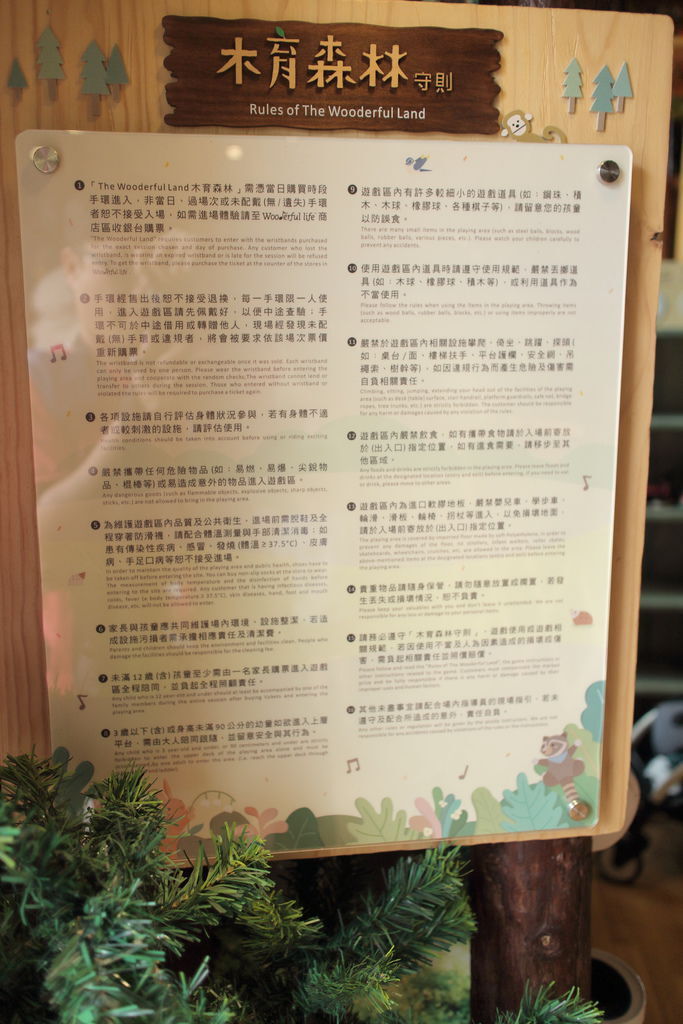 木育森林守則
Rules of The Wooderful Land
1 「The Wooderful Land 木育森林」需憑當日購買時段
手環進入，非當日、過場次或未配戴(無/遺失)手環
者恕不接受入場，如需進場體驗請至 Wooderful life 商
店區收銀台購票。
"The Wooderful Land" requires customers to enter with the wristbands purchased
for the exact session chosen and day of purchase. Any customer who lost the
wristband, is wearing an expired wristband or is late for the session will be refused
entry. To get the wristband, please purchase the ticket at the counter of the stores in
Wooderful life
2 手環經售出後恕不接受退換，每一手環限一人使
用，進入遊戲區請先佩戴好，以便中途查驗；手
環不可於中途借用或轉贈他人，現場經發現未配
戴(無)手環或違規者，將會被要求依該場次票價
重新購票。
The wristband is not refundable or exchangeable once it was sold. Each wristband
can only be used by one person. Please wear the wristband before entering the
playing area and cooperate with the random checks. The wristband cannot lend or
transfer to others during the session. Those who entered without wristband or
violated the rules will be required to purchase a ticket again.
3 各項設施請自行評估身體狀況參與，若有身體不適
者或較刺激的設施，請評估使用。
Health conditions should be taken into account before using or riding exciting
facilities.
4 嚴禁攜帶任何危險物品(如：易燃、易爆、尖銳物
品、棍棒等)或易造成意外的物品進入遊戲區。
Any dangerous goods (such as flammable objects, explosive objects, sharp objects,
sticks, etc.) are not allowed to bring in the playing area.
5 為維護遊戲區內品質及公共衛生，進場前需脫鞋及全
程穿著防滑襪，請配合體溫測量與手部清潔消毒；如
患有傳染性疾病、感冒、發燒(體溫≥37.5℃)、皮膚
病、手足口病等恕不接受進場。
In order to maintain the quality of the playing area and public health, shoes have to
be taken off before entering the site. You can buy non-slip socks at the store to wear.
The measurement of body temperature and the disinfection of hands before
entering to the site are required. Any customer that is having infectious diseases,
fever (≥ body temperature ≥ 37.5℃), skin diseases, hand, foot and mouth
disease, etc. will not be allowed to enter.
6 家長與孩童應共同維護場內環境、設施整潔，若造
成設施污損者需承擔相應責任及清潔費。
Parents and children should keep the environment and facilities clean. People who
damage the facilities should be responsible for the cleaning fee.
7 未滿12歲(含)孩童至少需由一名家長購票進入遊戲
區全程陪同，並負起全程照顧責任。
Any child who is 12 year old and under should at least be accompanied by one of the
family members during the entire session after purchasing tickets.
8 3歲以下(含)或身高未滿90公分的幼童如欲進入上層
平台，需由大人陪同跟隨，並留意安全與其行為。
9 遊戲區內有許多較細小的遊戲道具(如：鋼珠、積
木、木球、橡膠球、各種棋子等)，請留意您的孩童
以防誤食。
There are many small items in the playing area (such as steel balls, blocks, wood
balls, rubber balls, various pieces, etc.). Please watch your children carefully to
prevent any accidents.
10 使用遊戲區內道具時請遵守使用規範，嚴禁丟擲道
具(如：木球、橡膠球、積木等)，或利用道具作為
不當使用。
Please follow the rules when using the items in the playing area. Throwing items
(such as wood balls, rubber balls, blocks, etc.) or using items improperly are not
acceptable.
11 嚴禁於遊戲區內相關設施攀爬、倚坐、跳躍、探頭(
如：桌台/面、樓梯扶手、平台護欄、安全網、吊
繩索、樹幹等)，如因違規行為而產生危險及傷害需
自負相關責任。
Climbing, sitting, jumping, extending your head out of the facilities of the playing
area (such as (table) surface, stair handrail, platform guardrails, safe net, bridge
ropes, tree trunks, etc.) are strictly forbidden. The customer should be responsible
for any harm or damages caused by any violation of the rules.
12 遊戲區內嚴禁飲食，如有攜帶食物請於入場前寄放
於(出入口)指定位置，如有進食需要，請移步至其
他區域。
Any foods and drinks are strictly forbidden in the playing area. Please leave foods and
drinks at the designated location (entry and exit) before entering. If you need to eat
or drink, please move to other areas.
13 遊戲區內為進口軟膠地板，嚴禁嬰兒車、學步車、
輪滑、滑板、輪椅、拐杖等進入，以免損壞地面，
請於入場前寄放於(出入口)指定位置。
14 貴重物品請隨身保管，請勿隨意放置或擱置，若發
生丟失或損壞情況，恕不負責。
Please keep your valuables with you and don't leave it unattended. We are not
15 請務必遵守「木育森林守則」、遊戲使用或遊戲相
關規範，若因使用不當及人為因素造成的損壞或傷
害，需負起相關責任並照價賠償。
16 其他未盡事宜請配合場內指導員的現場指引，若未
遵守及配合所造成的意外，責任自負。